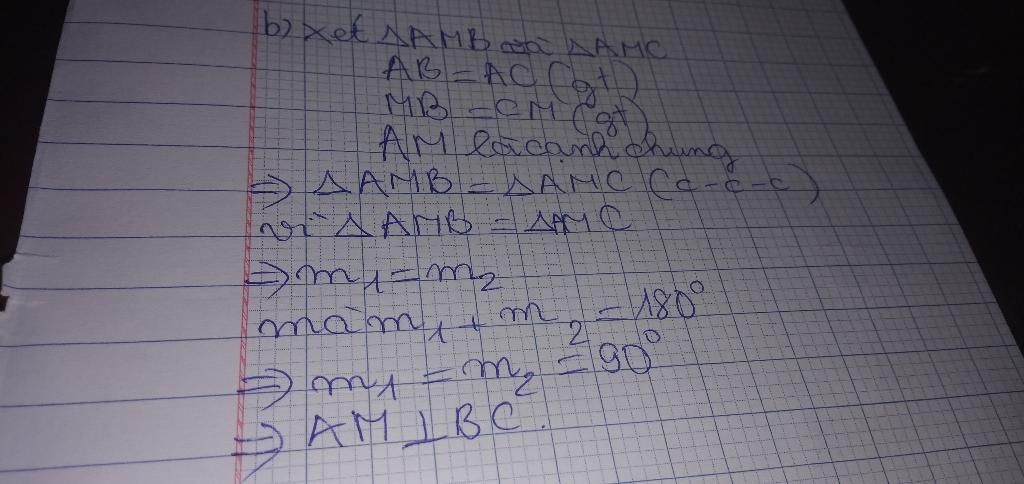 b) Xét ΔAMB và ΔAMC
AB = AC (gt)
MB = CM (gt)
AM là cạnh chung
=> ΔAMB = ΔAMC (c-c-c)
vì ΔAMB = ΔAMC
=> m₁ = m₂
mà m₁ + m₂ = 180°
=> m₁ = m₂ = 90°
=> AM ⊥ BC.